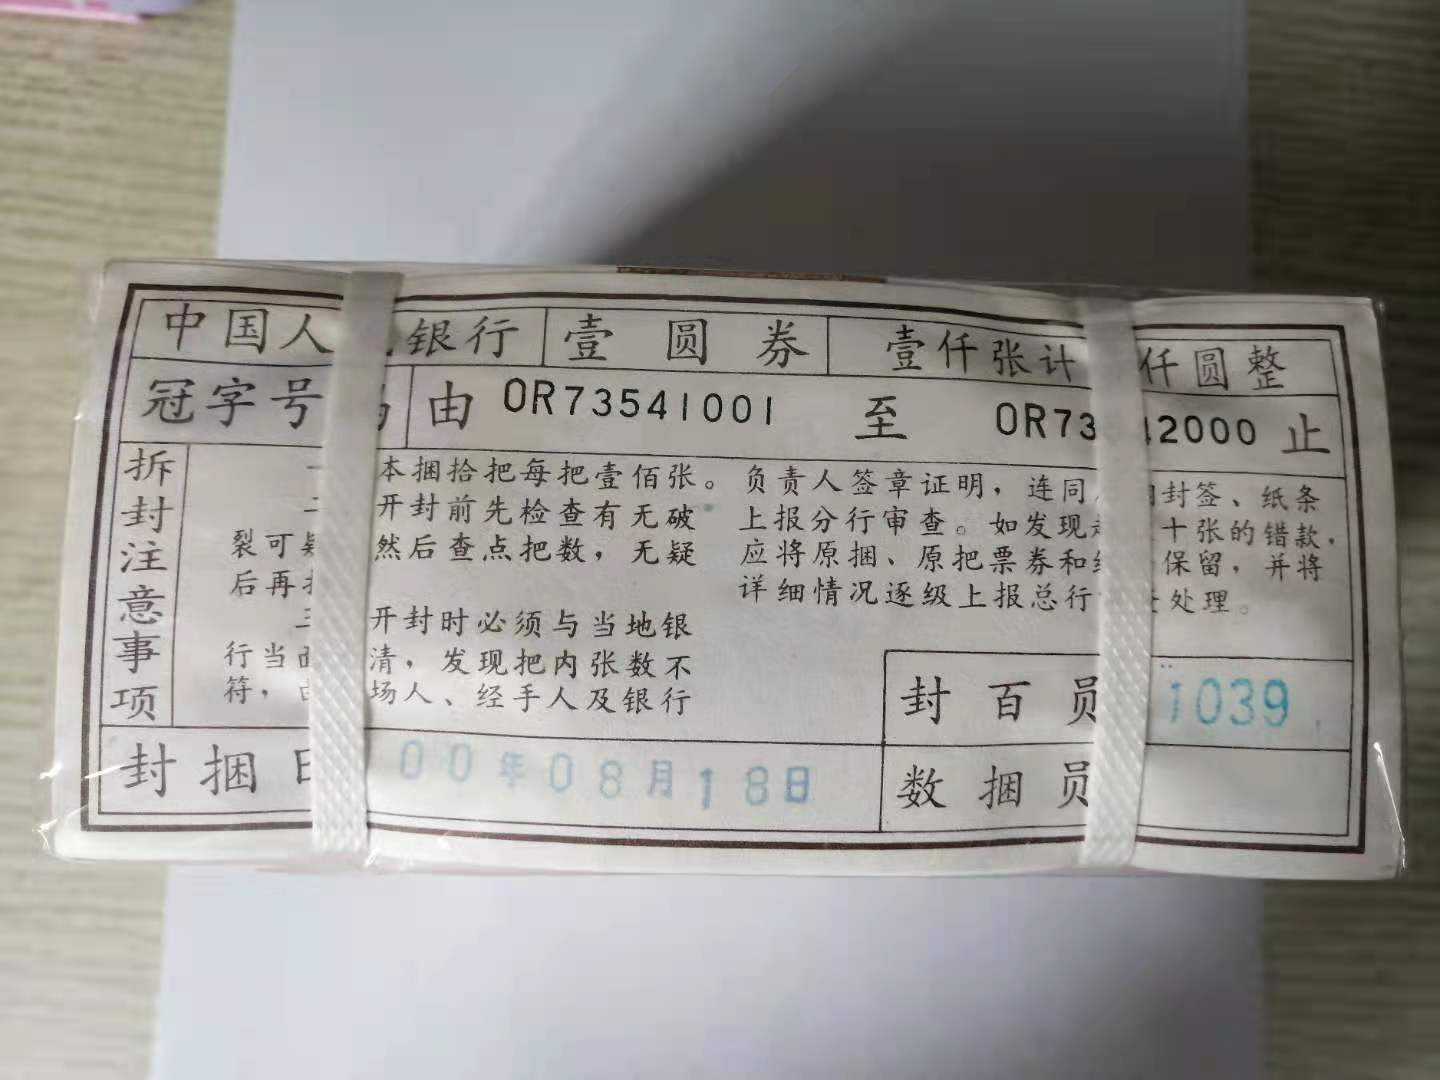 中国人 银行 壹圆券 壹仟张计 仟圆整
冠字号 由 OR73541001 至 OR73 42000 止
拆封注意事项
一 本捆拾把每把壹佰张。
二 开封前先检查有无破
裂可疑 然后查点把数，无疑
后再
三 开封时必须与当地银
行当面 清，发现把内张数不
符， 场人、经手人及银行
负责人签章证明，连同 封签、纸条
上报分行审查。如发现 十张的错款，
应将原捆、原把票券和 保留，并将
详细情况逐级上报总行 处理。
封百员 1039
封捆日 00年08月18日
数捆员